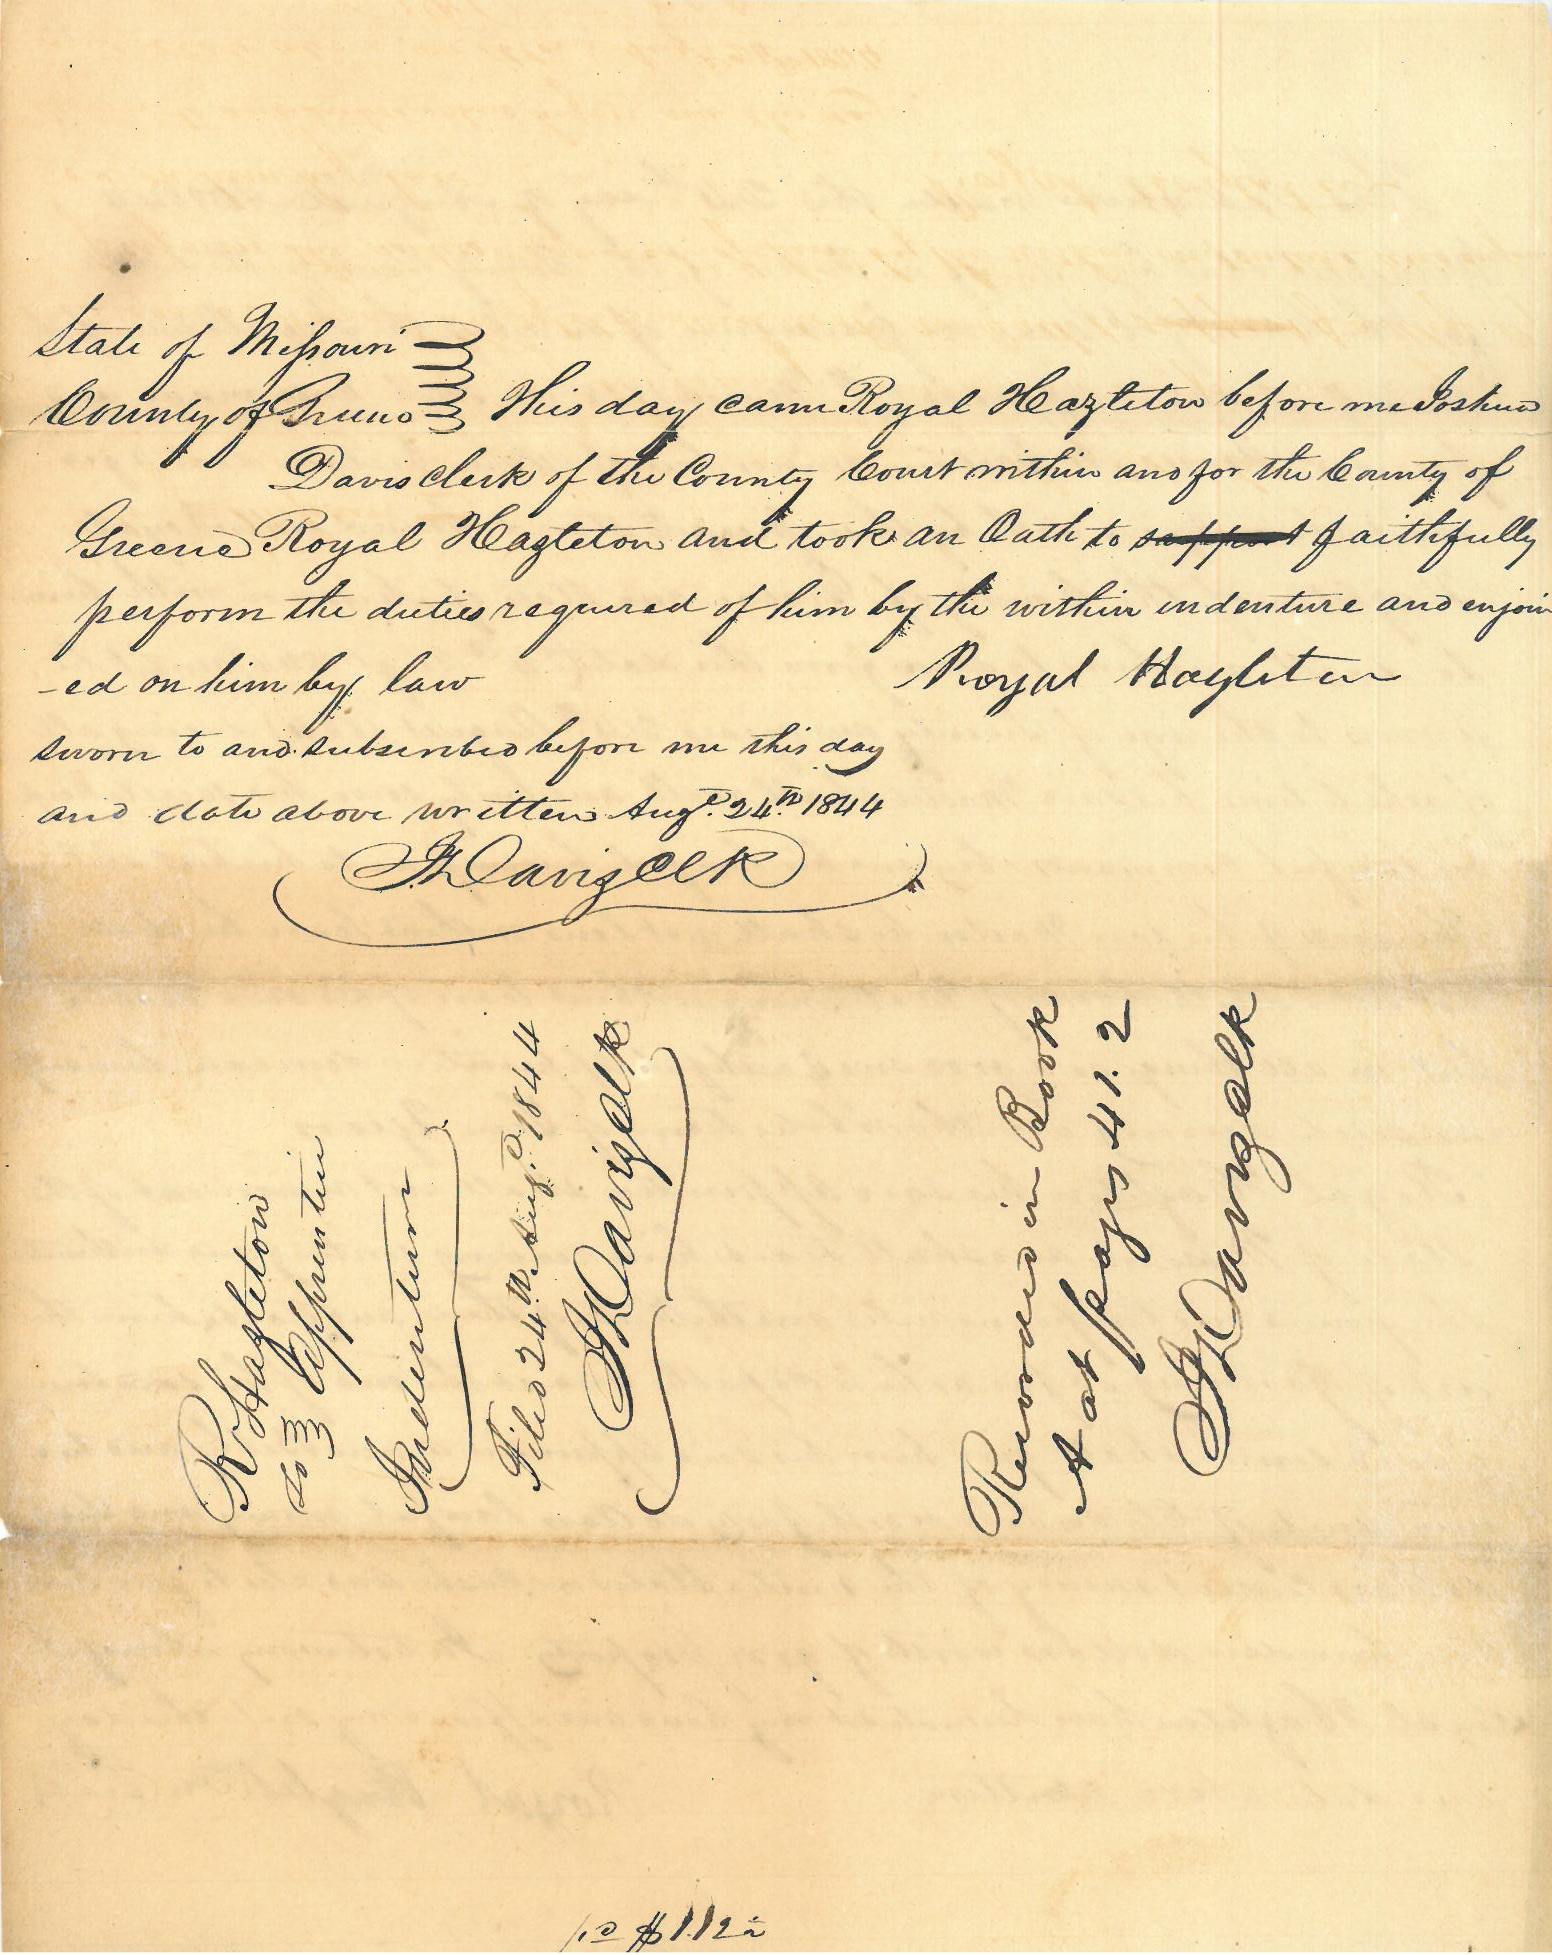 State of Missouri
County of Greene This day came Royal Hazleton before me Joshua
Davis clerk of the County Court within and for the County of
Greene Royal Hazleton and took an Oath to support faithfully
perform the duties required of him by the within indenture and enjoin
-ed on him by law Royal Hazleton
sworn to and subscribed before me this day
and date above written Augt. 24th. 1844
J Davis Clk
R Hazleton
to Apprentice
Indenture
Filed 24th. Augt. 1844
J Davis Clk
Recorded in Book
A at pages 41.2
J Davis Clk
$1.12½